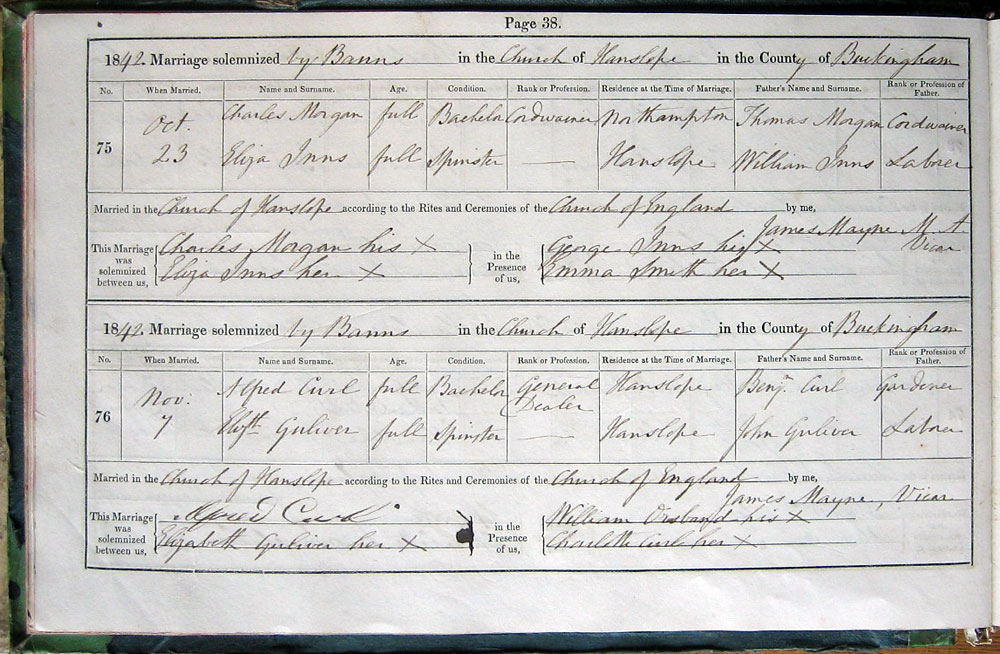 Page 38.
1842. Marriage solemnized by Banns in the Church of Hanslope in the County of Buckingham
No. When Married. Name and Surname. Age. Condition. Rank or Profession. Residence at the Time of Marriage. Father's Name and Surname. Rank or Profession of Father.
75 Oct. 23
Charles Morgan full Bachelor Cordwainer Northampton Thomas Morgan Cordwainer
Eliza Inns full Spinster — Hanslope William Inns Laborer
Married in the Church of Hanslope according to the Rites and Ceremonies of the Church of England by me,
James Mayne M. A Vicar
This Marriage was solemnized between us, Charles Morgan his X in the Presence of us, George Inns his X
Eliza Inns her X Emma Smith her X
1842. Marriage solemnized by Banns in the Church of Hanslope in the County of Buckingham
No. When Married. Name and Surname. Age. Condition. Rank or Profession. Residence at the Time of Marriage. Father's Name and Surname. Rank or Profession of Father.
76 Nov: 7
Alfred Curl full Bachelor General Dealer Hanslope Benj. Curl Gardener
Elizth Guliver full Spinster — Hanslope John Guliver Laborer
Married in the Church of Hanslope according to the Rites and Ceremonies of the Church of England by me,
James Mayne, Vicar
This Marriage was solemnized between us, Alfred Curl in the Presence of us, William his X
Elizabeth Guliver her X Charlotte Curl her X